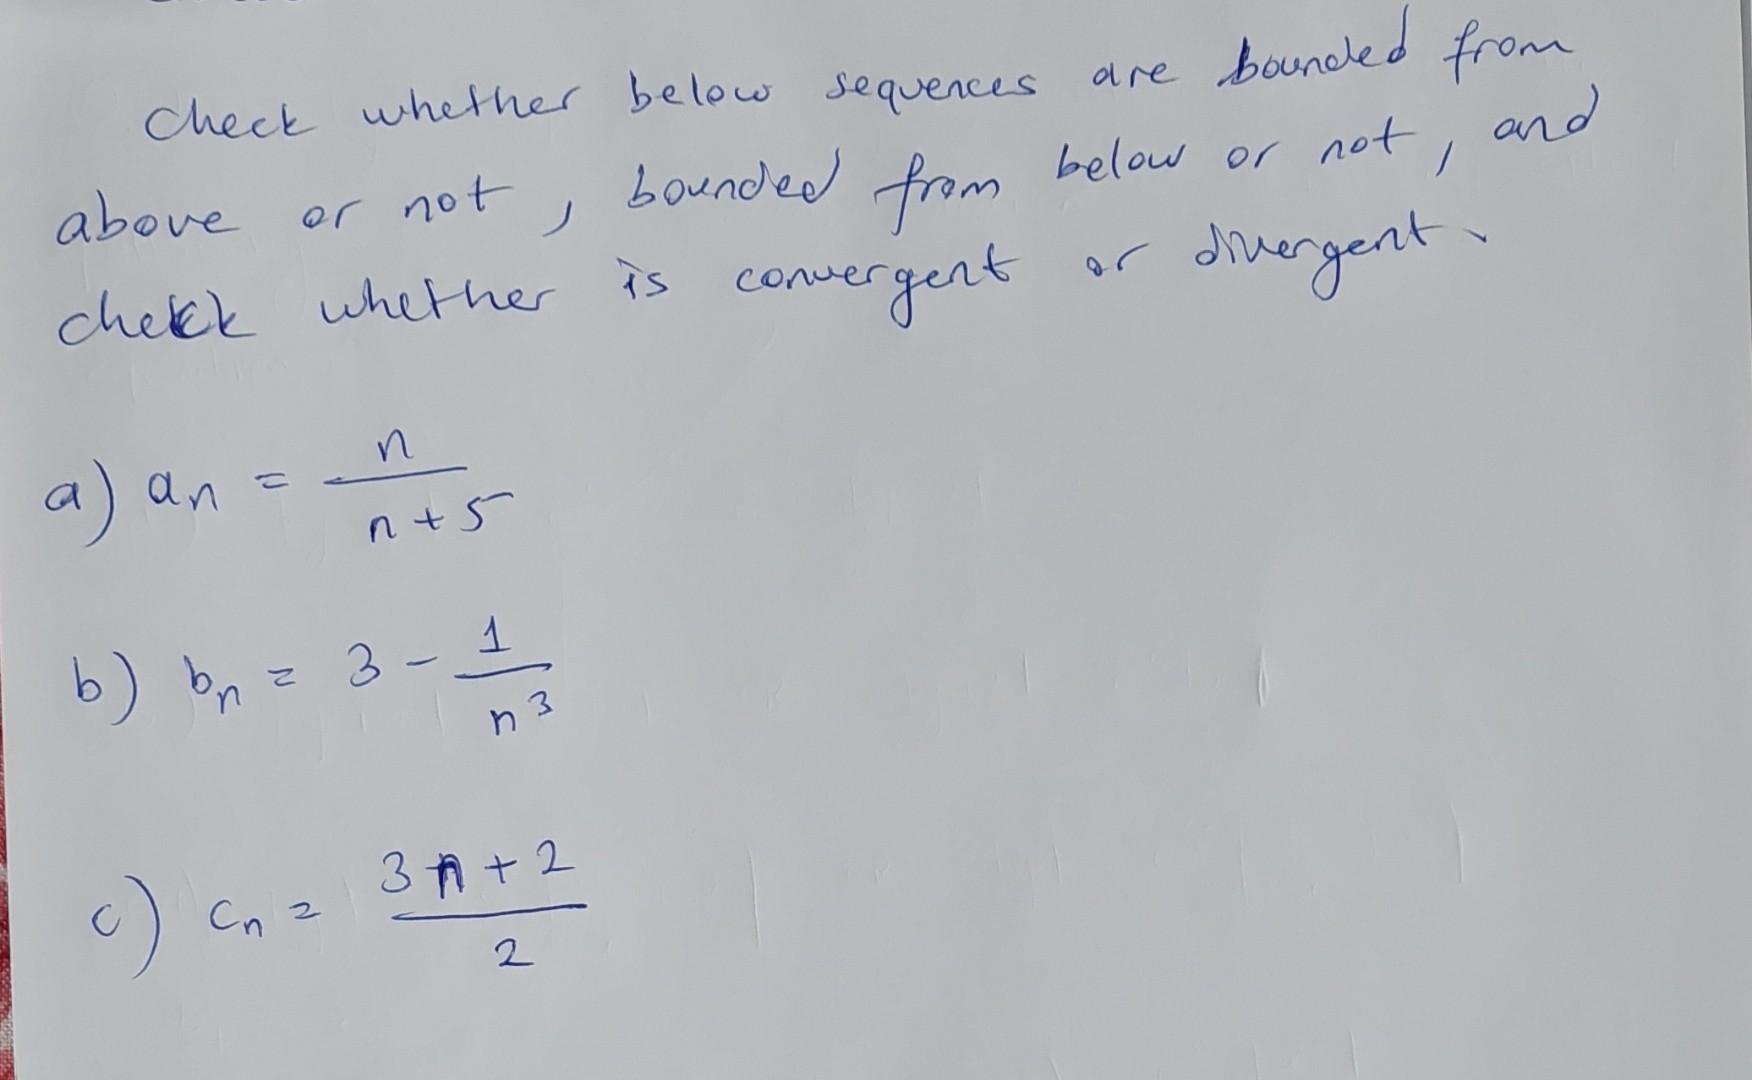 Check whether below sequences are bounded from
above or not, bounded from below or not, and
check whether is convergent or divergent.
a) an = n / n + 5
b) bn = 3 - 1 / n³
c) cn = 3n + 2 / 2